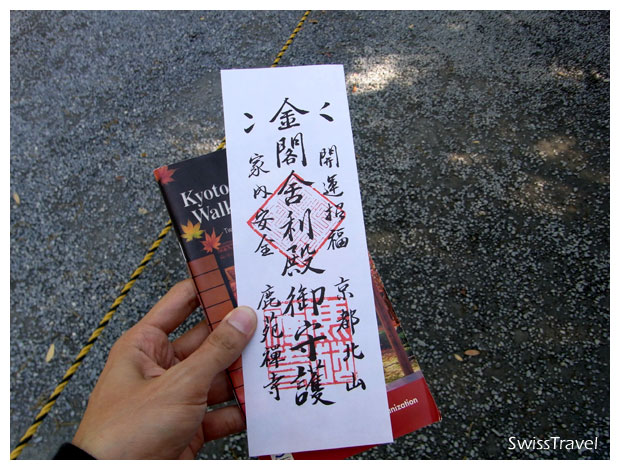 開運招福
京都北山
金閣舎利殿御守護
家内安全
鹿苑禅寺
Kyoto
Walk
SwissTravel